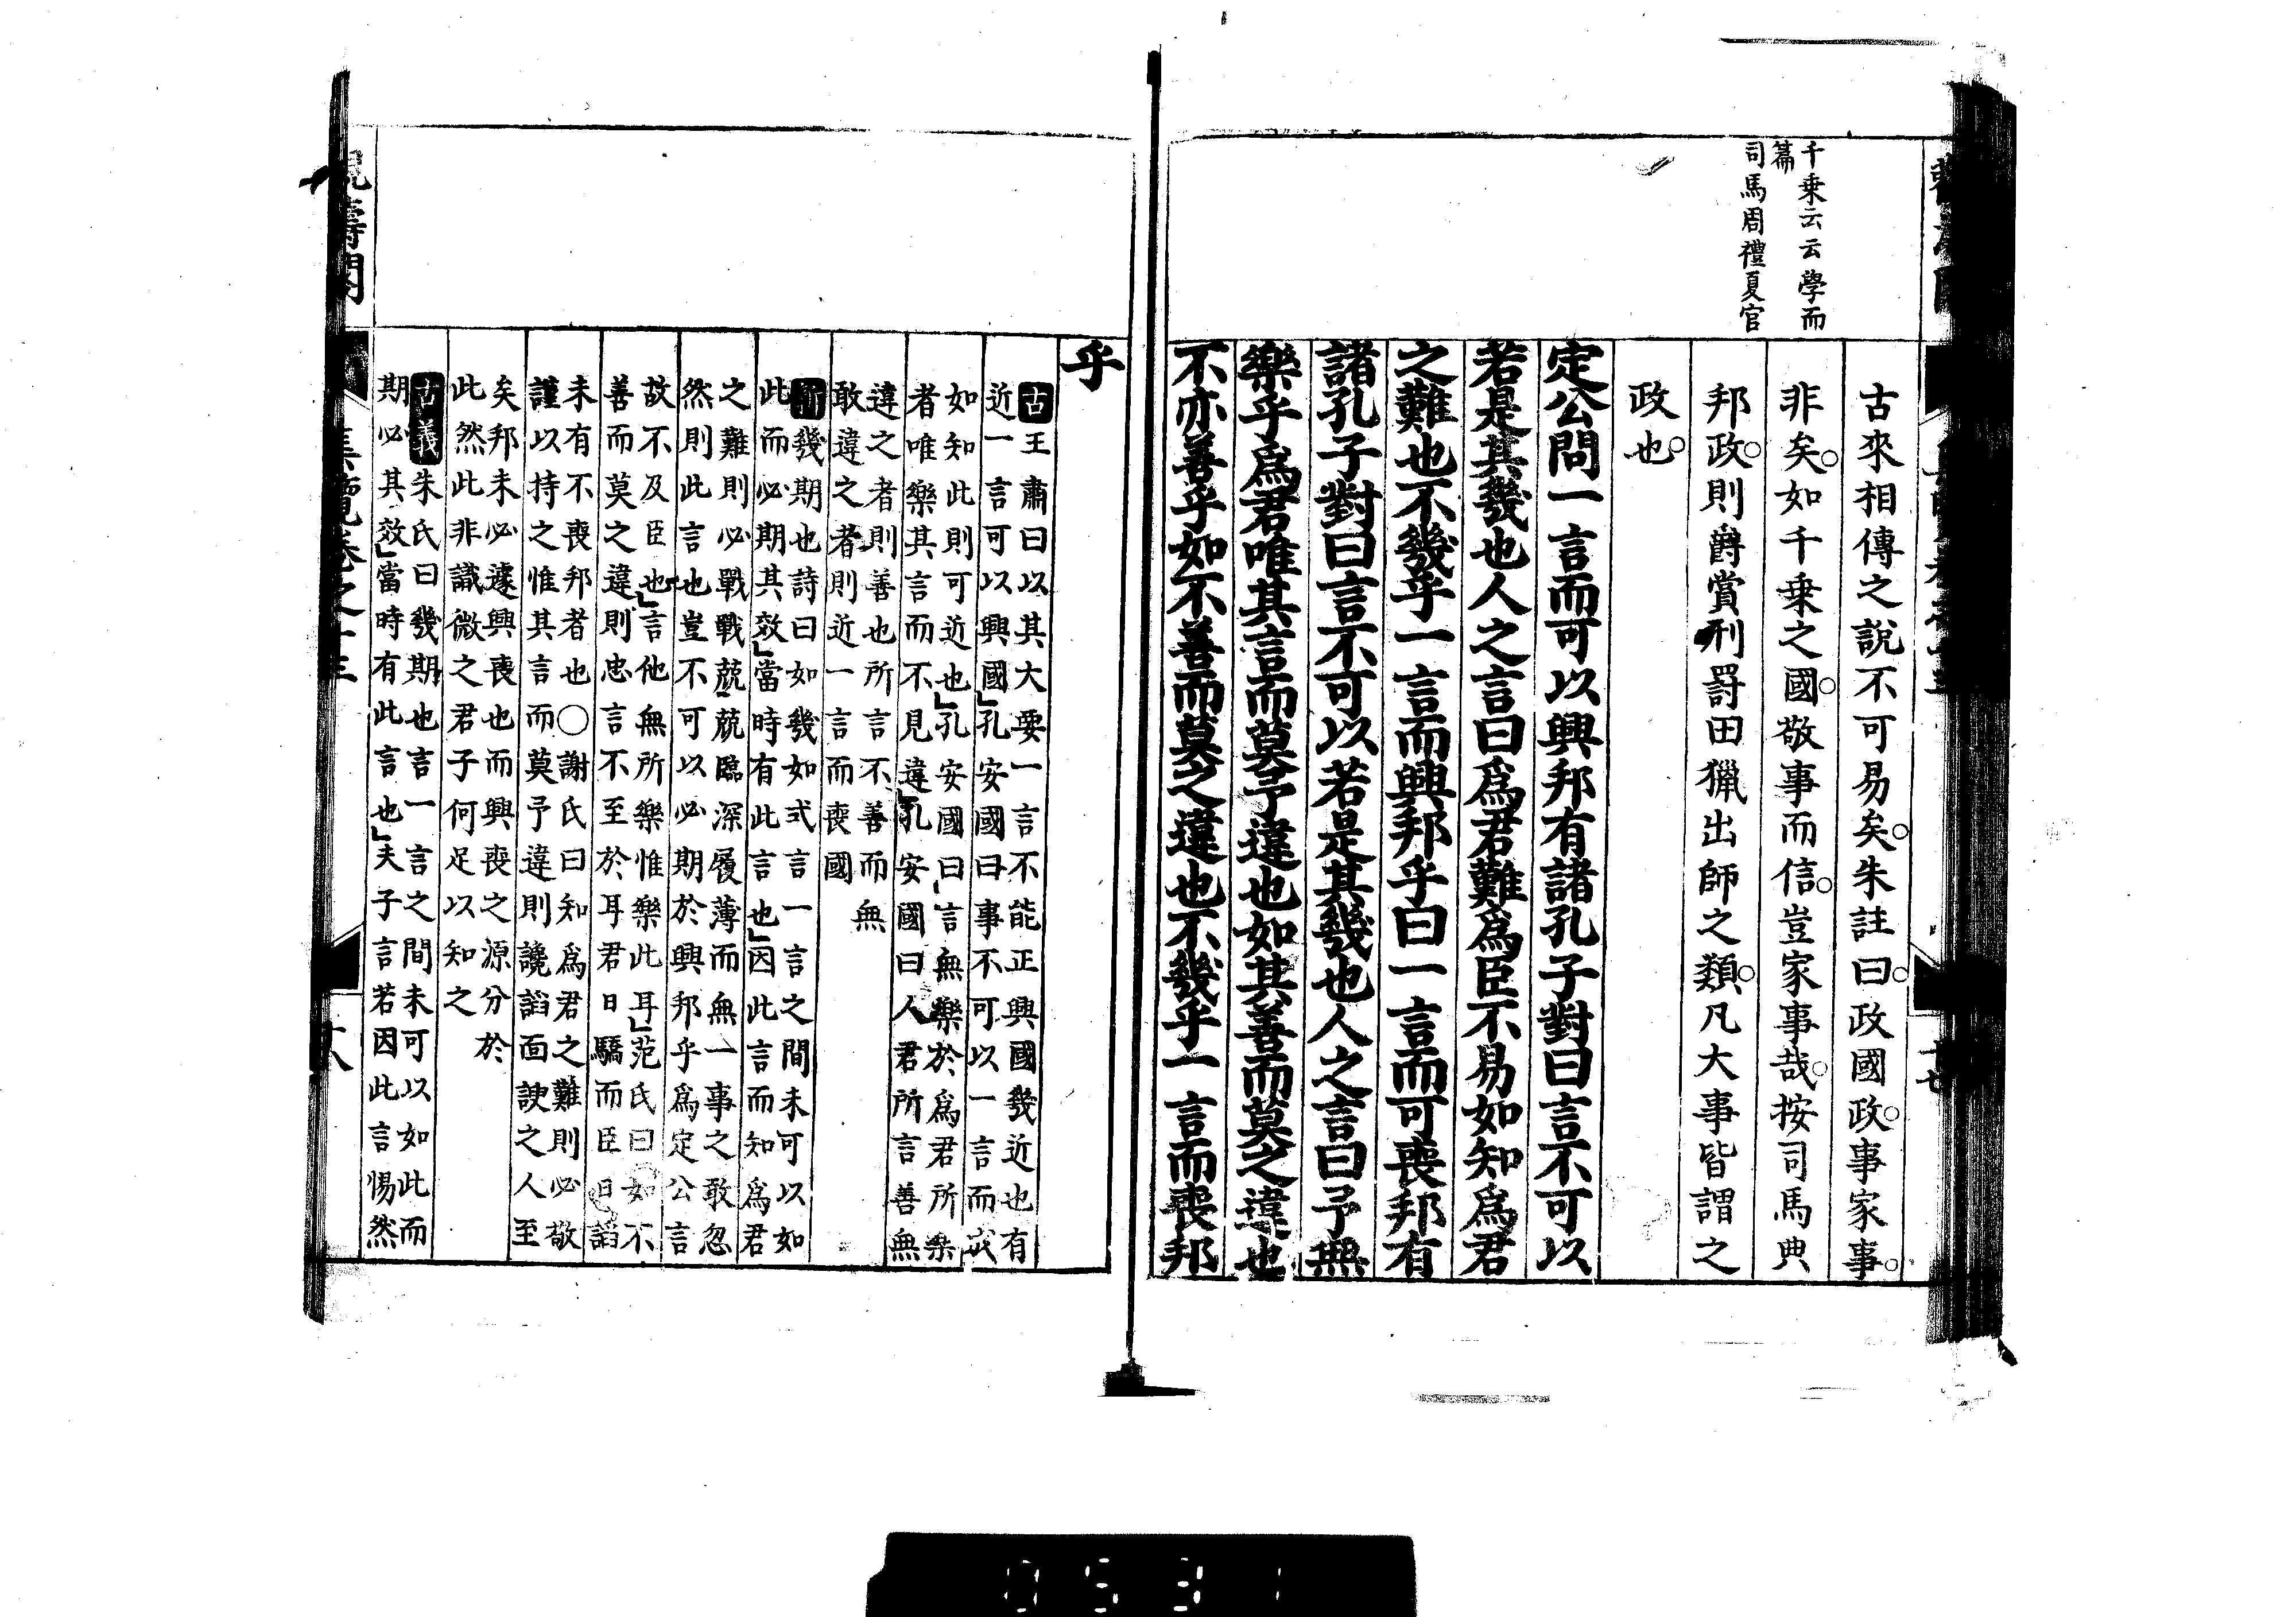 千乗云云學而
篇
司馬周禮夏官
古來相傳之說不可易矣朱註曰政國政事家事
非矣如千乗之國敬事而信豈家事事哉按司馬典
邦政則爵賞刑罸田獵出師之類凡大事皆謂之
政也
定公問一言而可以興邦有諸孔子對曰言不可以
若是其幾也人之言曰爲君難爲臣不易如知爲君
之難也不幾乎一言而興邦乎曰一言而可喪邦有
諸孔子對曰言不可以若是其幾也人之言曰予無
樂乎爲君唯其言而莫予違也如其善而莫之違也
不亦善乎如不善而莫之違也不幾乎一言而喪邦
乎
古王肅曰以其大要一言不能正興國幾近也有
近一言可以興國孔安國曰事不可以一言而成
如知此則可近也孔安國曰言無樂於爲君所樂
者唯樂其言而不見違孔安國曰人君所言善無
違之者則善也所言不善而無
敢違之者則近一言而喪國
新幾期也詩曰如幾如式言一言之間未可以如
此而必期其效當時有此言也因此言而知爲君
之難則必戰戰兢兢臨深履薄而無一事之敢忽
然則此言也豈不可以必期於興邦乎爲定公言
故不及臣也言他無所樂惟樂此耳范氏曰如不
善而莫之違則忠言不至於耳君日驕而臣日謟
未有不喪邦者也〇謝氏曰知爲君之難則必敬
謹以持之惟其言而莫予違則讒謟面諛之人至
矣邦未必遽興喪也而興喪之源分於
此然此非識微之君子何足以知之
古義朱氏曰幾期也言一言之間未可以如此而
期必其效當時有此言也夫子言若因此言惕然
集覽卷之十三
0531